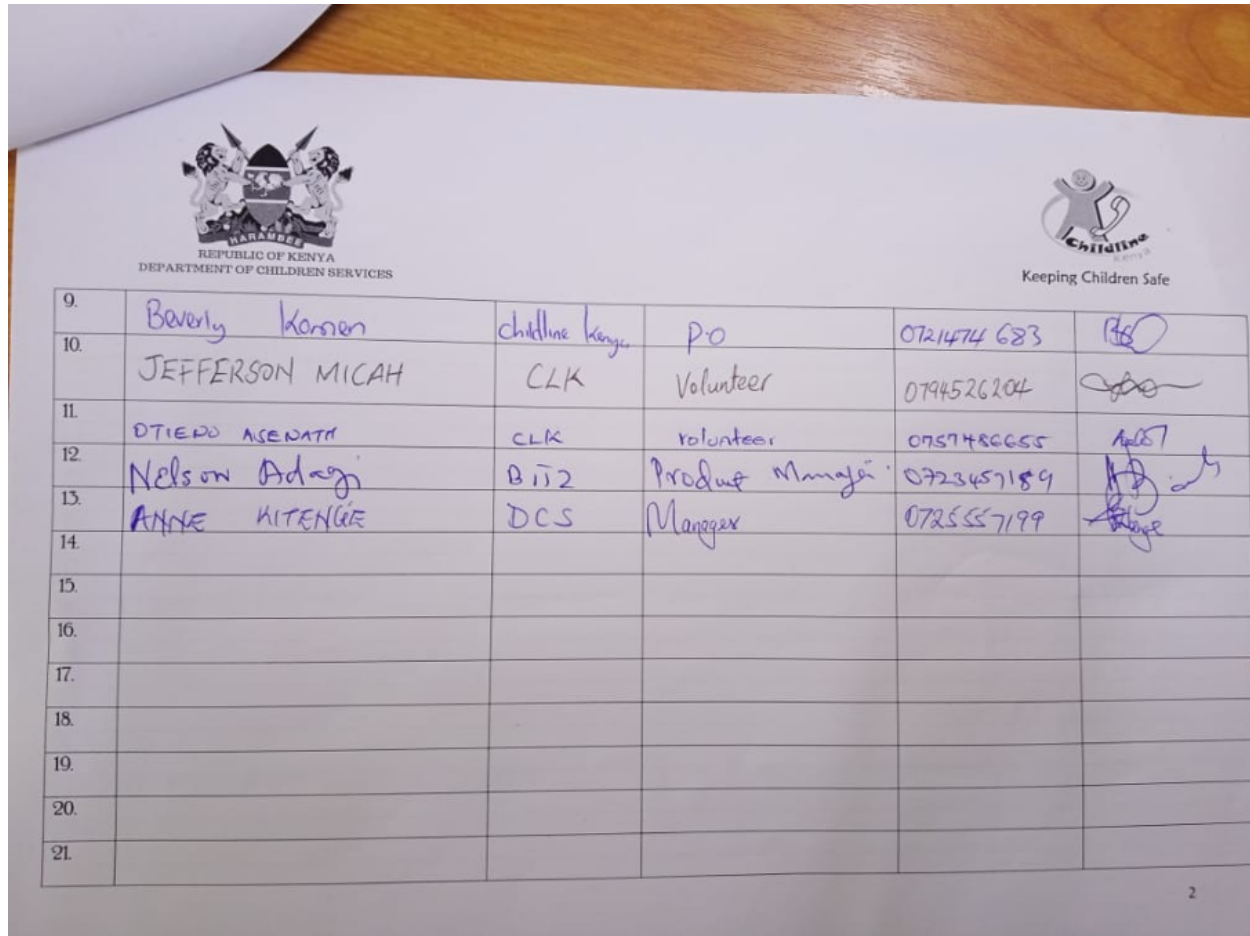 HARAMBEE
REPUBLIC OF KENYA
DEPARTMENT OF CHILDREN SERVICES
Childline
Kenya
Keeping Children Safe
9. Beverly Komen Childline Kenya P.O 0721474 683
10. JEFFERSON MICAH CLK Volunteer 0794526204
11. OTIENO ASENATH CLK volunteer 0757486655
12. Nelson Adagi Product Manager 0723457189
13. ANNE KITENGE DCS Manager 0725557199
14.
15.
16.
17.
18.
19.
20.
21.
2